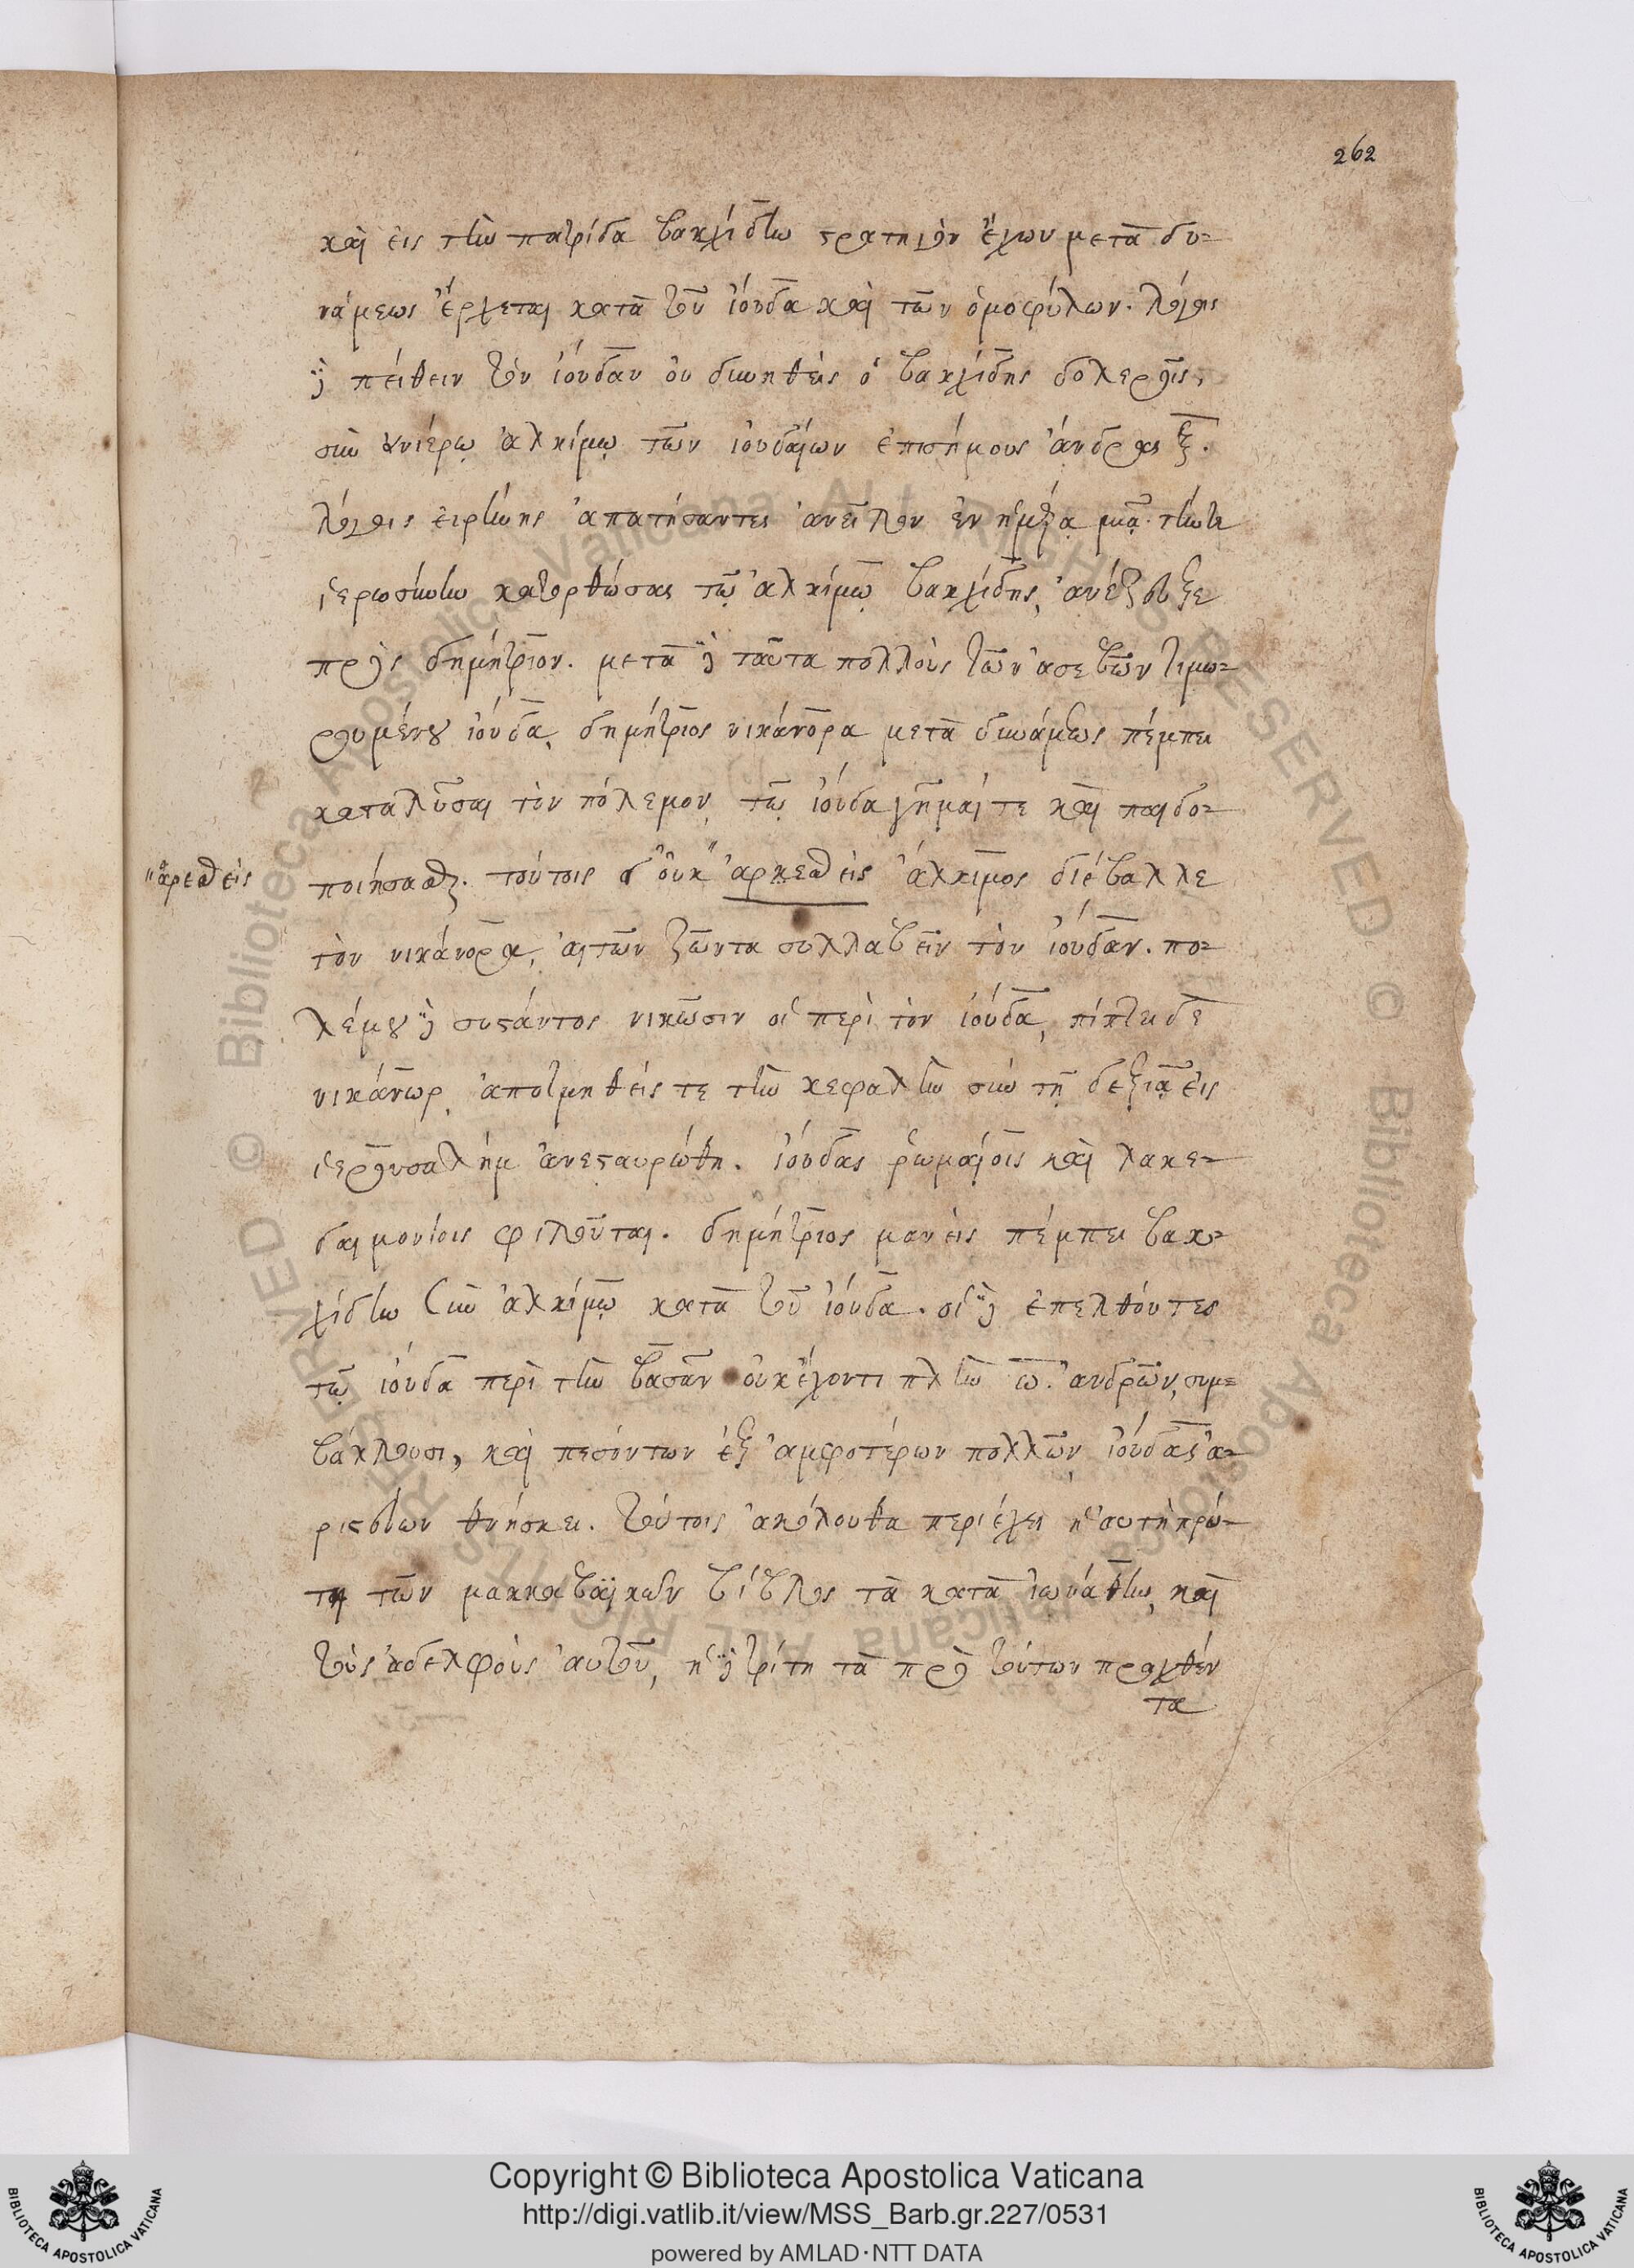 262
καὶ εἰς τὴν πατρίδα βακχίδην στρατηγὸν ἔχων μετὰ δυ-
νάμεως ἔρχεται κατὰ τοῦ ἰούδα καὶ τῶν ὁμοφύλων. λόγοις
δὲ πείθειν τὸν ἰούδαν οὐ δυνηθεὶς ὁ βακχίδης δολεροῖς,
σὺν ἀνιέρῳ ἀλκίμῳ τῶν ἰουδαίων ἐπισήμους ἄνδρας ξ.
λόγοις εἰρήνης ἀπατήσαντες ἀνεῖλον ἐν ἡμέρᾳ μιᾷ. τήν τε
ἱερωσύνην κατορθώσας τῷ ἀλκίμῳ βακχίδης, ἀνέζευξε
πρὸς δημήτριον. μετὰ δὲ ταῦτα πολλοὺς τῶν ἀσεβῶν τιμω-
ρουμένου ἰούδα, δημήτριος νικάνορα μετὰ δυνάμεως πέμπει
καταλῦσαι τὸν πόλεμον, τῷ ἰούδα γῆμαί τε καὶ παιδο-
"ἀρεσθεὶς
ποιήσασθαι. τούτοις δ' οὐκ "ἀρκεσθεὶς ἄλκιμος διέβαλλε
τὸν νικάνορα, αἰτῶν ζῶντα συλλαβεῖν τὸν ἰούδαν. πο-
λέμου δὲ συστάντος νικῶσιν οἱ περὶ τὸν ἰούδα, πίπτει δὲ
νικάνωρ, ἀποτμηθείς τε τὴν κεφαλὴν σὺν τῇ δεξιᾷ εἰς
ἱερουσαλὴμ ἀνεσταυρώθη. ἰούδας ῥωμαίοις καὶ λακε-
δαιμονίοις φιλοῦται. δημήτριος μανεὶς πέμπει βακ-
χίδην σὺν ἀλκίμῳ κατὰ τοῦ ἰούδα. οἱ δὲ ἐπελθόντες
τῷ ἰούδα περὶ τὴν βασὰν οὐκ ἔχοντι πλὴν ω. ἀνδρῶν, συμ-
βάλλουσι, καὶ πεσόντων ἐξ ἀμφοτέρων πολλῶν, ἰούδας ἀ-
ριστεύων θνήσκει. τούτοις ἀκόλουθα περιέχει ἡ αὐτὴ πρώ-
τη τῶν μακκαβαϊκῶν βίβλος τὰ κατὰ ἰωνάθην, καὶ
τοὺς ἀδελφοὺς αὐτοῦ, ἡ δὲ τρίτη τὰ πρὸ τούτων πραχθέν
τα
Copyright © Biblioteca Apostolica Vaticana
http://digi.vatlib.it/view/MSS_Barb.gr.227/0531
powered by AMLAD·NTT DATA
BIBLIOTECA APOSTOLICA VATICANA
BIBLIOTECA APOSTOLICA VATICANA